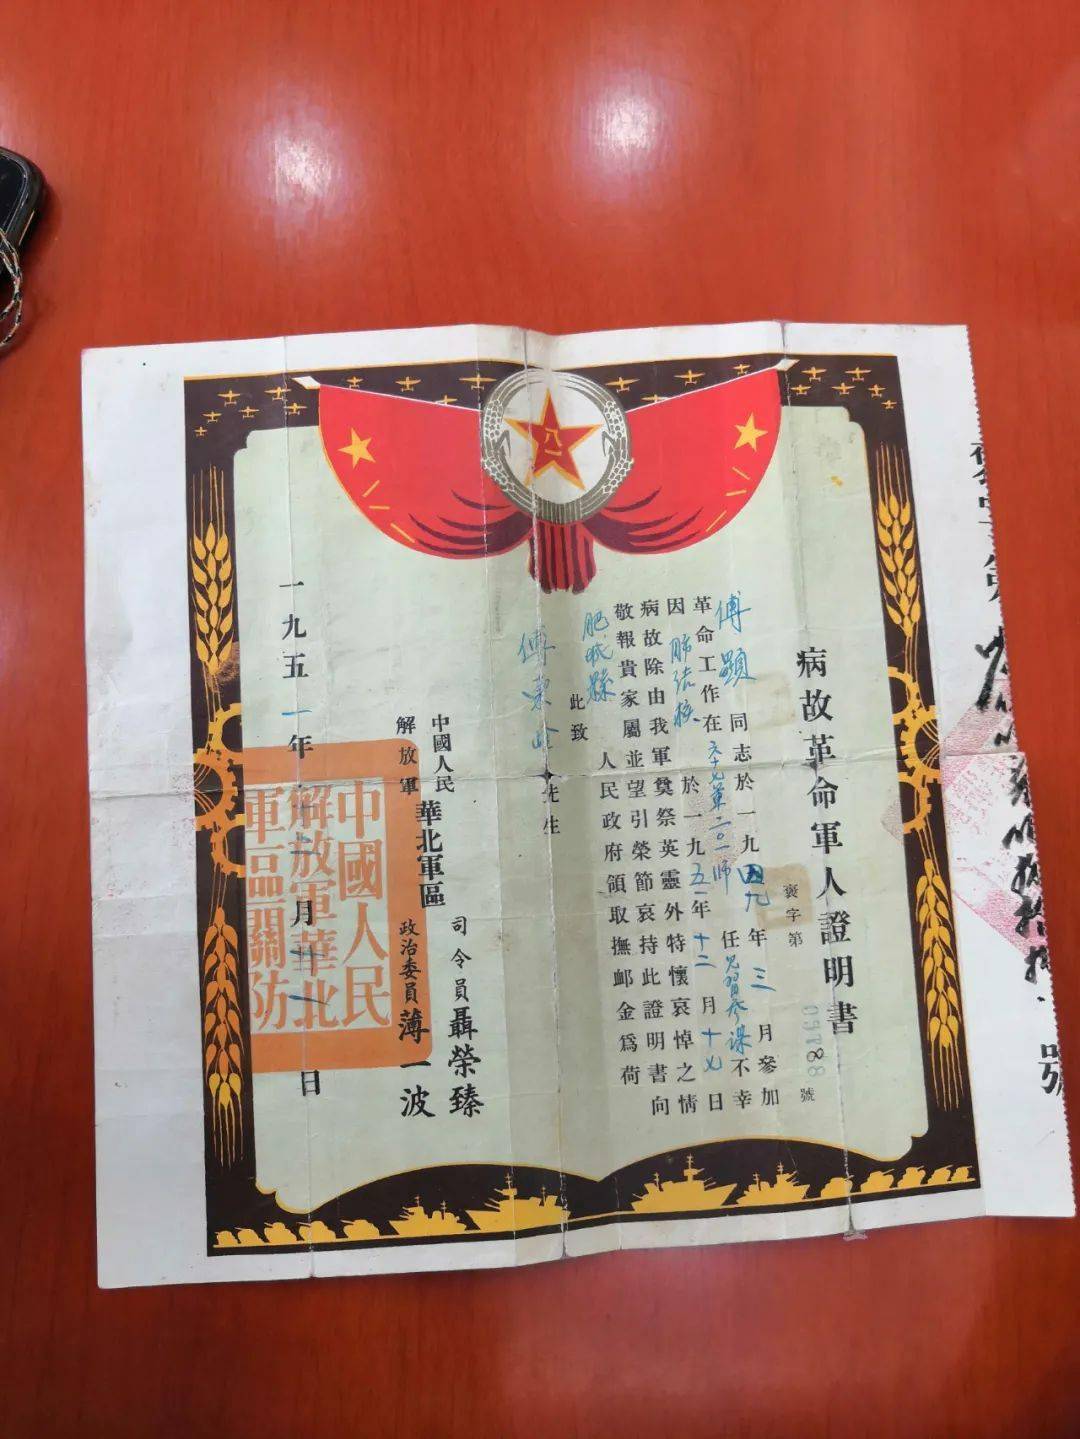 病故革命軍人證明書
褒字第 號
傅顯同志於一九四九年三月參加
革命工作在六十七軍二〇一師任見習參謀不幸
因肺結核於一九五一年十二月十七日
病故除由我軍奠祭英靈外特懷哀悼之情
敬報貴家屬並望引榮節哀持此證明書向
肥城縣人民政府領取撫卹金爲荷
此致
傅東 先生
中國人民解放軍華北軍區司令員聶榮臻
政治委員薄一波
一九五一年 月 日
中國人民
解放軍華北
軍區關防
八一
號